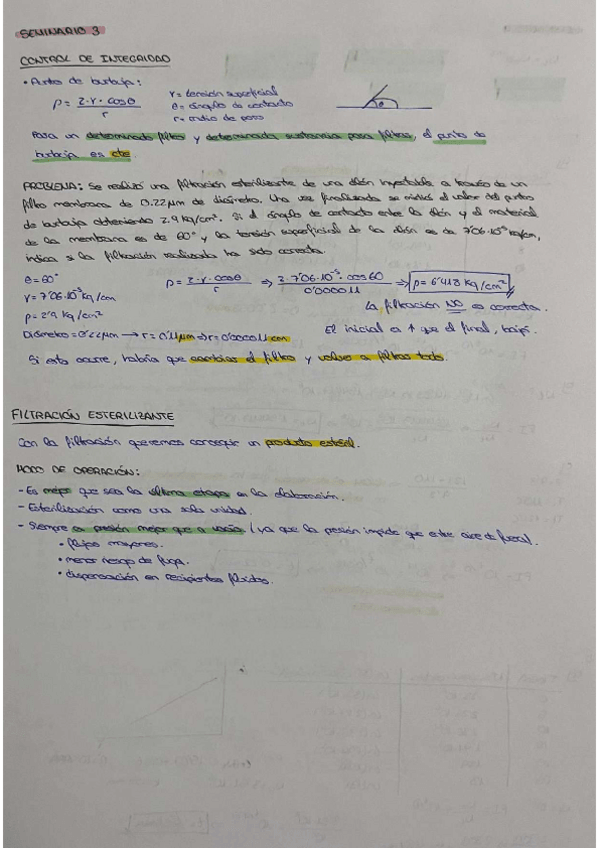 SEMINARIO 3
CONTROL DE INTEGRIDAD
• Punto de burbuja:
P = 2·γ·cosθ / r
γ = tensión superficial
θ = ángulo de contacto
r = radio de poro
Para un determinado filtro y determinada sustancia para filtrar, el punto de
burbuja es cte.
PROBLEMA: Se realizó una filtración esterilizante de una disln inyectable a través de un
filtro membrana de 0.22µm de diámetro. Una vez finalizada se midió el valor del punto
de burbuja obteniendo 2.9 kg/cm². Si el ángulo de contacto entre la disln y el material
de la membrana es de 60° y la tensión superficial de la disln es de 7'06·10⁻⁵ kg/cm,
indica si la filtración realizada ha sido correcta.
θ = 60°
γ = 7'06·10⁻⁵ kg/cm
p = 2'9 kg/cm²
Diámetro = 0'22µm → r = 0'11µm → r = 0'000011 cm
P = 2·γ·cosθ / r ⇒ 2·7'06·10⁻⁵·cos60 / 0'000011 ⇒ P = 6'418 kg/cm²
La filtración NO es correcta.
El inicial a ↑ que el final, bajó.
Si esto ocurre, habría que cambiar el filtro y volver a filtrar todo.
FILTRACIÓN ESTERILIZANTE
Con la filtración queremos conseguir un producto estéril.
MODO DE OPERACIÓN:
- Es mejor que sea la última etapa en la elaboración.
- Esterilización como una sola unidad.
- Siempre a presión mejor que a vacío / ya que la presión impide que entre aire de fuera.
• flujos mayores.
• menor riesgo de fuga.
• dispensación en recipientes